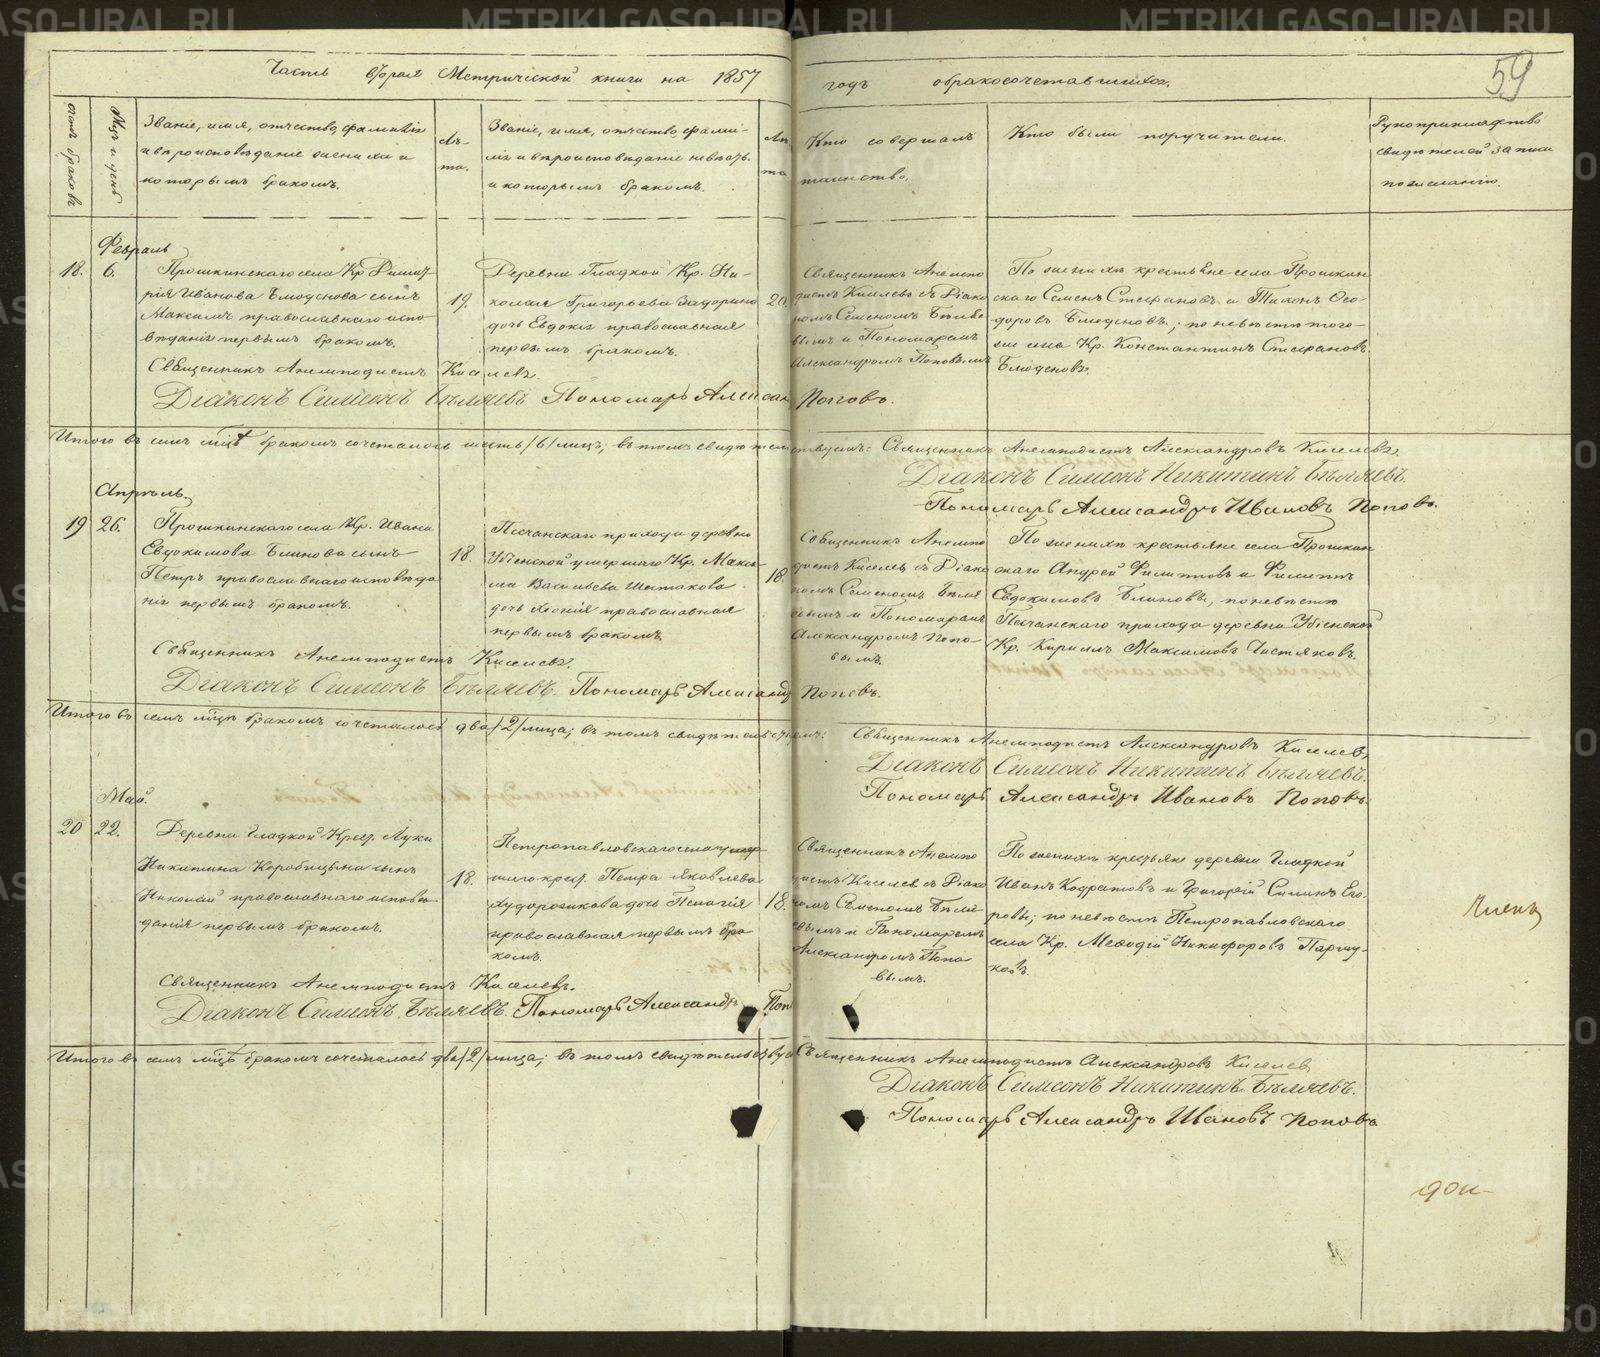 Часть вторая Метрической книги на 1857 годъ о бракосочетавшихся.
59
Счетъ браковъ
Мѣс. и день
Званіе, имя, отчество, фамилія
и вѣроисповѣданіе жениха и
которымъ бракомъ.
Лѣ-
та.
Званіе, имя, отчество, фами-
лія и вѣроисповѣданіе невѣсты
и которымъ бракомъ.
Лѣ
та
Кто совершалъ
таинство.
Кто были поручители.
Рукоприкладство
свидѣтелей записи
по желанію.
Февраль
18. 6.
Прошкинскаго села Кр.
Иванова сынъ
Максимъ православнаго испо-
вѣданія первымъ бракомъ.
19.
Деревни Гладкой Кр. Ни-
колая Григорьева
дочь Евдокія православная
первымъ бракомъ.
20.
Священникъ Анемпо
дистъ Киселевъ съ Діако
номъ Семеномъ Бѣляе
вымъ и Пономаремъ
Александромъ Поповымъ
По женихѣ крестьяне села Прошкин
скаго Семенъ Стефановъ и Тихонъ Ѳео-
доровъ; по невѣстѣ того-
же села Кр. Константинъ Стефановъ
Священникъ Анемподистъ Киселевъ.
Діаконъ Симеонъ Бѣляевъ. Пономарь Александръ Поповъ.
Итого въ семъ мѣсяцѣ бракомъ сочеталось шесть /6/ лицъ; въ томъ свидѣтельствуемъ: Священникъ Анемподистъ Александровъ Киселевъ,
Діаконъ Симеонъ Никитинъ Бѣляевъ.
Пономарь Александръ Ивановъ Поповъ.
Апрѣль.
19 26.
Прошкинскаго села Кр. Ивана
Евдокимова Блинова сынъ
Петръ православнаго исповѣда
нія первымъ бракомъ.
18.
Песчанскаго прихода деревни
Убіенской умершаго Кр. Макси-
ма Васильева
дочь Ксенія православная
первымъ бракомъ
18.
Священникъ Анемпо
дистъ Киселевъ съ Діако
номъ Семеномъ Бѣляе
вымъ и Пономаремъ
Александромъ Попо-
вымъ.
По женихѣ крестьяне села Прошкин
скаго Андрей Филипповъ и Филиппъ
Евдокимовъ Блиновы, по невѣстѣ
Песчанскаго прихода деревни Убіенской
Кр. Кириллъ Максимовъ
Священникъ Анемподистъ Киселевъ.
Діаконъ Симеонъ Бѣляевъ. Пономарь Александръ Поповъ.
Итого въ семъ мѣсяцѣ бракомъ сочеталось два /2/ лица; въ томъ свидѣтельствуемъ: Священникъ Анемподистъ Александровъ Киселевъ,
Діаконъ Симеонъ Никитинъ Бѣляевъ.
Пономарь Александръ Ивановъ Поповъ.
Май.
20 22.
Деревни Гладкой Крест. Луки
Никитина Коробицына сынъ
Николай православнаго исповѣ
данія первымъ бракомъ.
18.
Петропавловскаго села умер
шаго крест. Петра Яковлева
Худорожкова дочь Пелагія
православная первымъ бра
комъ.
18.
Священникъ Анемпо
дистъ Киселевъ съ Діако
номъ Семеномъ Бѣля
евымъ и Пономаремъ
Александромъ Попо
вымъ.
По женихѣ крестьяне деревни Гладкой
Иванъ Кодратовъ и Григорій Силинъ Его-
ровы; по невѣстѣ Петропавловскаго
села Кр. Меѳодій Никифоровъ
Священникъ Анемподистъ Киселевъ.
Діаконъ Симеонъ Бѣляевъ. Пономарь Александръ Поп
Итого въ семъ мѣсяцѣ бракомъ сочеталось два /2/ лица; въ томъ свидѣтельству Священникъ Анемподистъ Александровъ Киселев
Діаконъ Симеонъ Никитинъ Бѣляевъ.
Пономарь Александръ Ивановъ Поповъ
METRIKI.GASO-URAL.RU